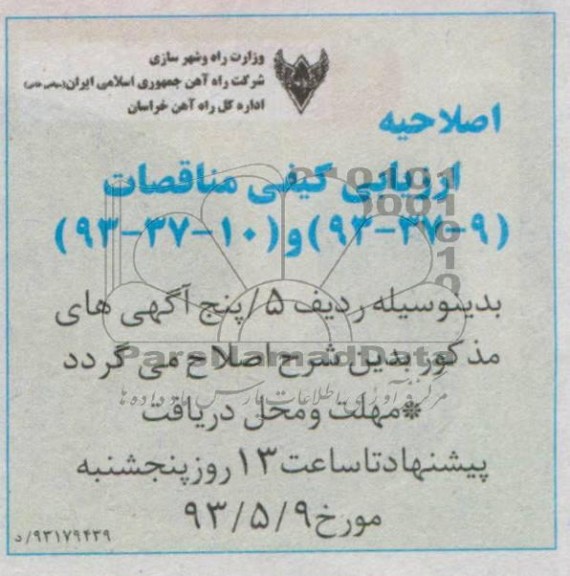 وزارت راه وشهر سازی
شرکت راه آهن جمهوری اسلامی ایران(سهامی خاص)
اداره کل راه آهن خراسان
اصلاحیه
ارزیابی کیفی مناقصات
(۹-۳۷-۹۳)و(۱۰-۳۷-۹۳)
بدینوسیله ردیف ۵/پنج آگهی های
مذکور بدین شرح اصلاح می گردد
ParsNamadData
مرکز فرآوری اطلاعات پارس نماد داده ها
*مهلت ومحل دریافت
پیشنهادتاساعت۱۳روزپنجشنبه
مورخ۹۳/۵/۹
۹۳۱۷۹۴۳۹/د